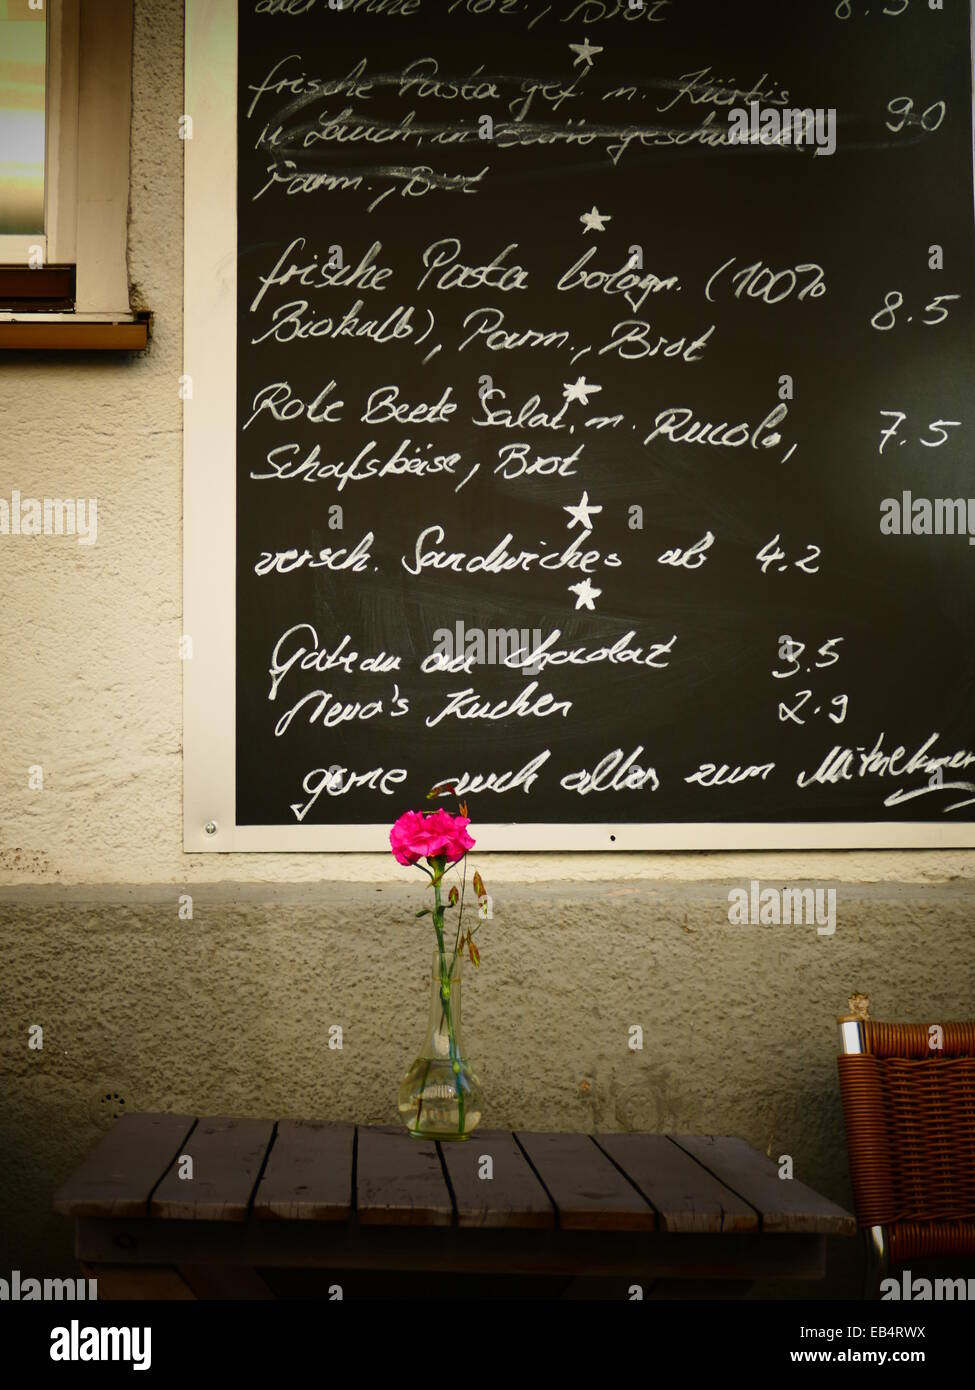 Brot 8.5
frische Pasta gef. m. Kürbis
u. Lauch, in geschwenkt, 9.0
Parm., Brot
frische Pasta bologn. (100%
Biokalb), Parm., Brot 8.5
Rote Beete Salat, m. Rucola,
Schafskäse, Brot 7.5
versch. Sandwiches ab 4.2
Gateau au chocolat 3.5
Kuchen 2.9
gerne auch alles zum Mitnehmen
alamy
a
alamy
Image ID: EB4RWX
www.alamy.com